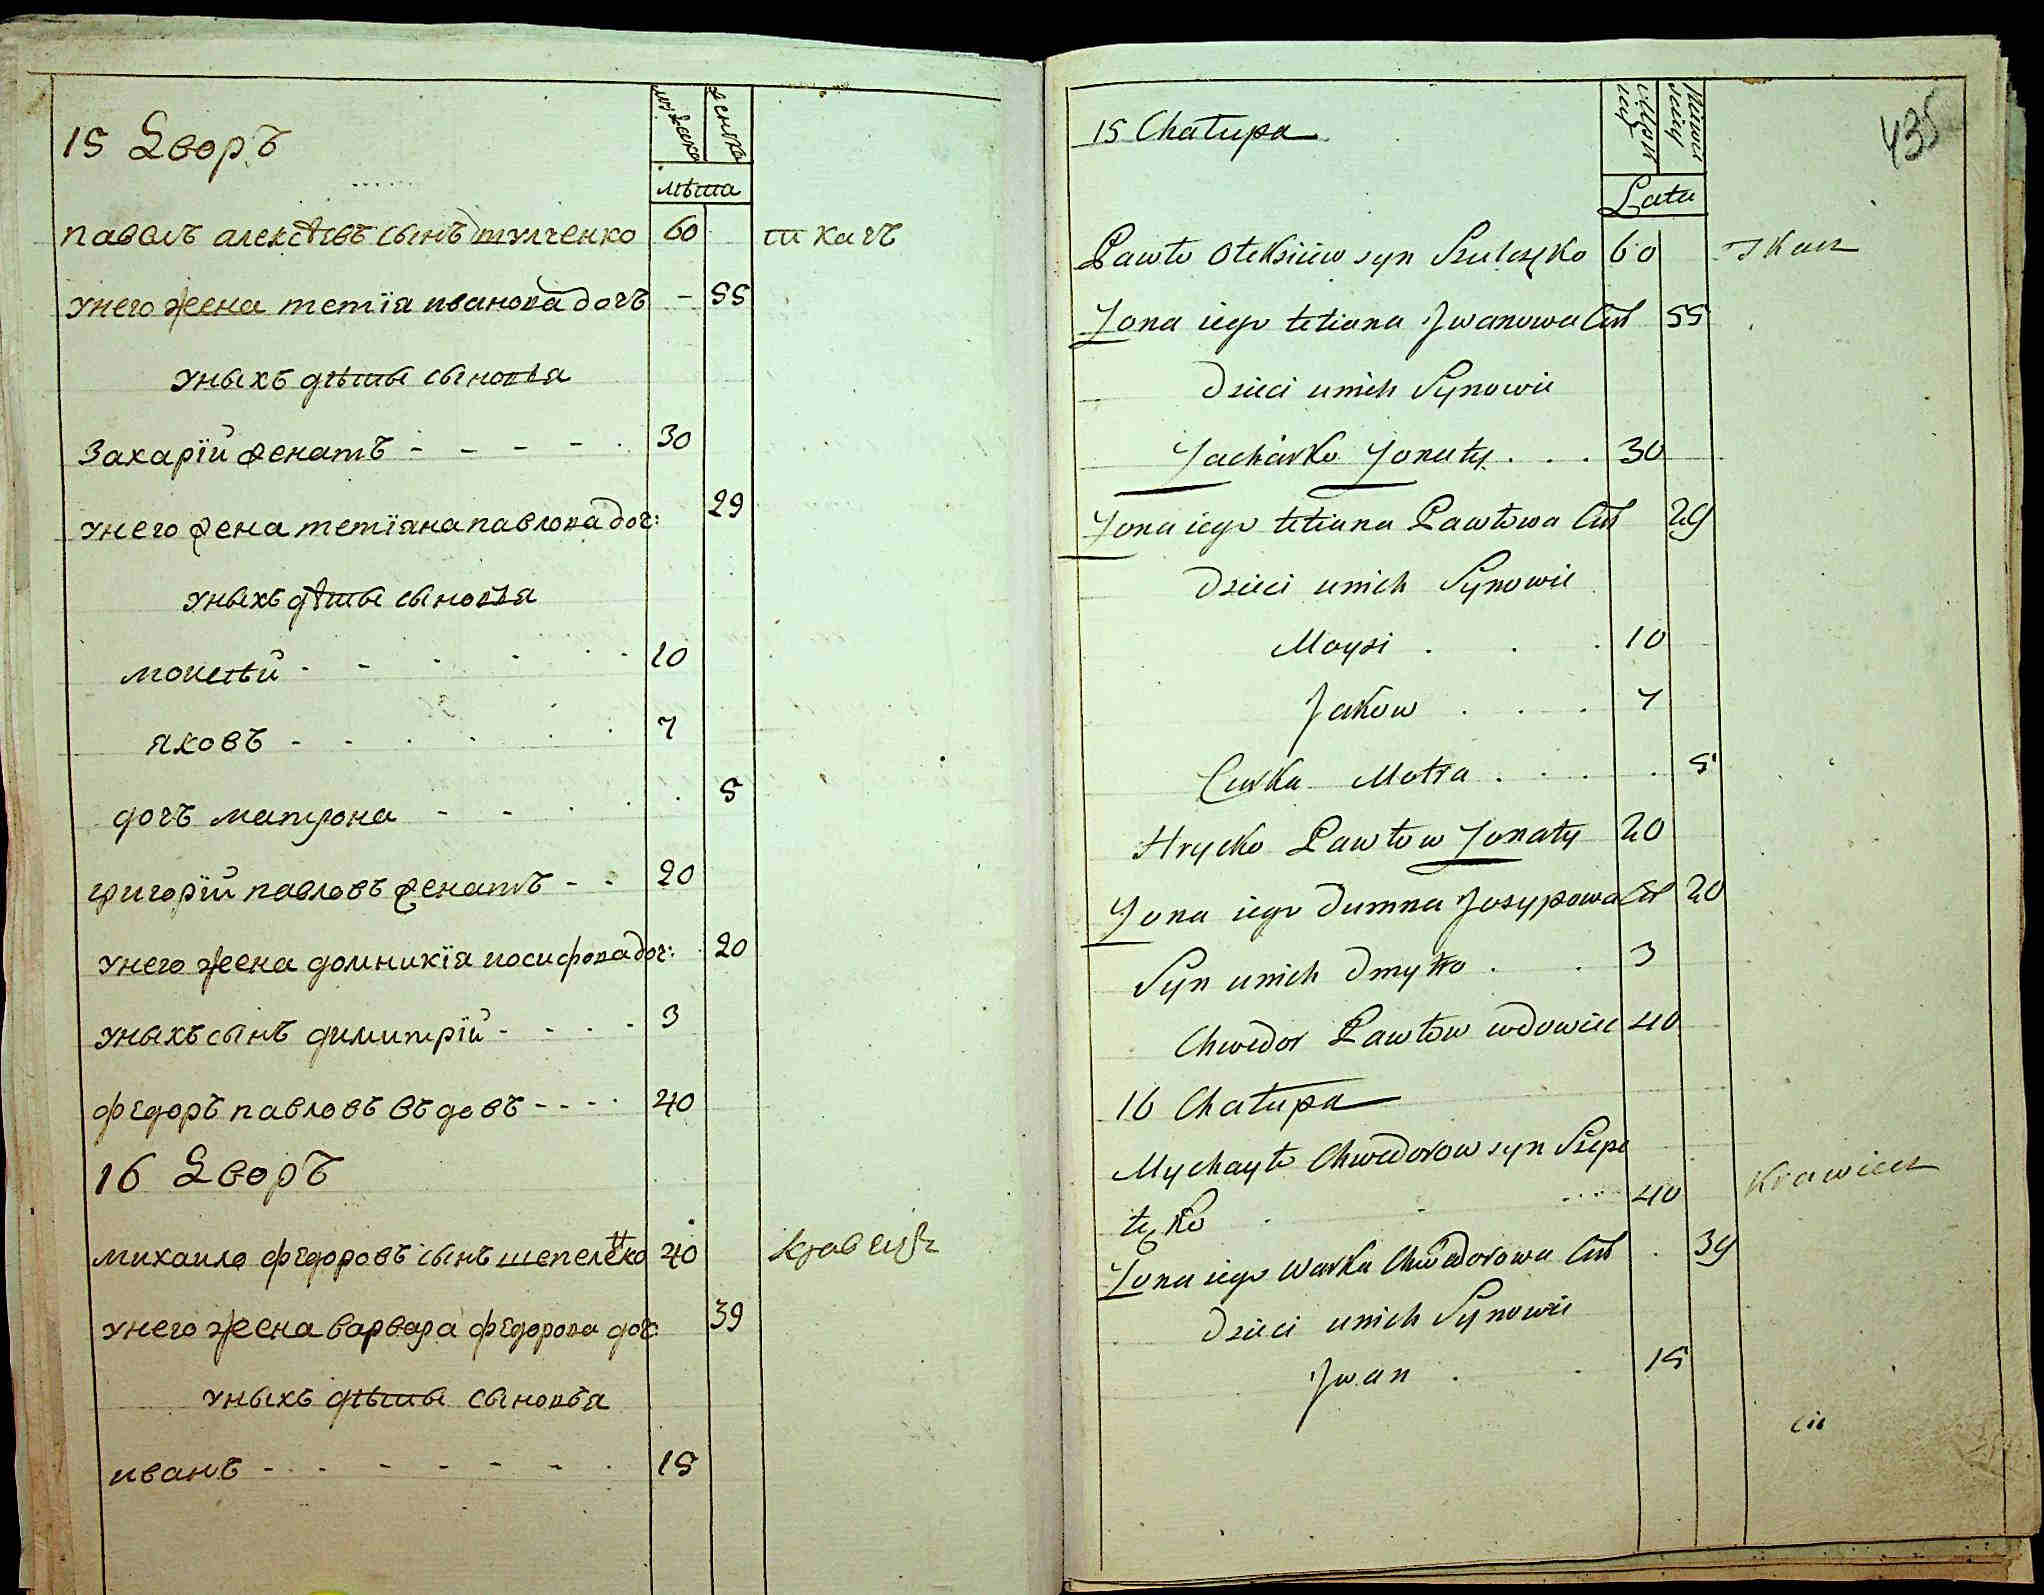 15 Дворъ
мужска
женска
лѣта
павелъ алексѣевъ сынъ шулченко 60 ткачъ
унего жена тетїѧ иванова дочъ - 55
уныхъ дѣты сыновья
Захарїй женатъ - - - - . 30
унего жена тетїѧна павлова доч: 29
уныхъ дѣты сыновья
мойсѣй - - - - - 10
ѧковъ - - - - - - 7
дочъ матрона - - . . . 5
григорїй павловъ женатъ - - 20
унего жена домникїѧ иосифова доч: 20
уныхъ сынъ димитрїй - - - - 3
фєдоръ павловъ въдовъ - - - - 40
16 Дворъ
михаило фєдоровъ сынъ шепелѣко 40 кравецъ
унего жена варвара фєдорова доч: 39
уныхъ дѣты сыновья
иванъ - - - - - - - . 15
435
15 Chałupa
Lata
Pawło Ołeksiiew syn Szulczęko 60 Tkacz
Żona iego tetiana Jwanowa Cur 55
Dzieci unich Synowie
Zacharko Żonaty . . . 30
Żona iego tetiana Pawłowa Cur 29
Dzieci unich Synowie
Moysi . . . 10
Jakow . . . 7
Curka Motra . . . . 5
Hrycko Pawłow Żonaty 20
Żona iego Dumna Josypowa Cur 20
Syn unich Dmytro . . 3
Chwedor Pawłow wdowiec 40
16 Chałupa
Mychayło Chwedorow syn Szepe
łęko . . ..... 40 Krawiecz
Żona iego Warka Chwedorowa Cur . 39
Dzieci unich Synowie
Jwan . . 15